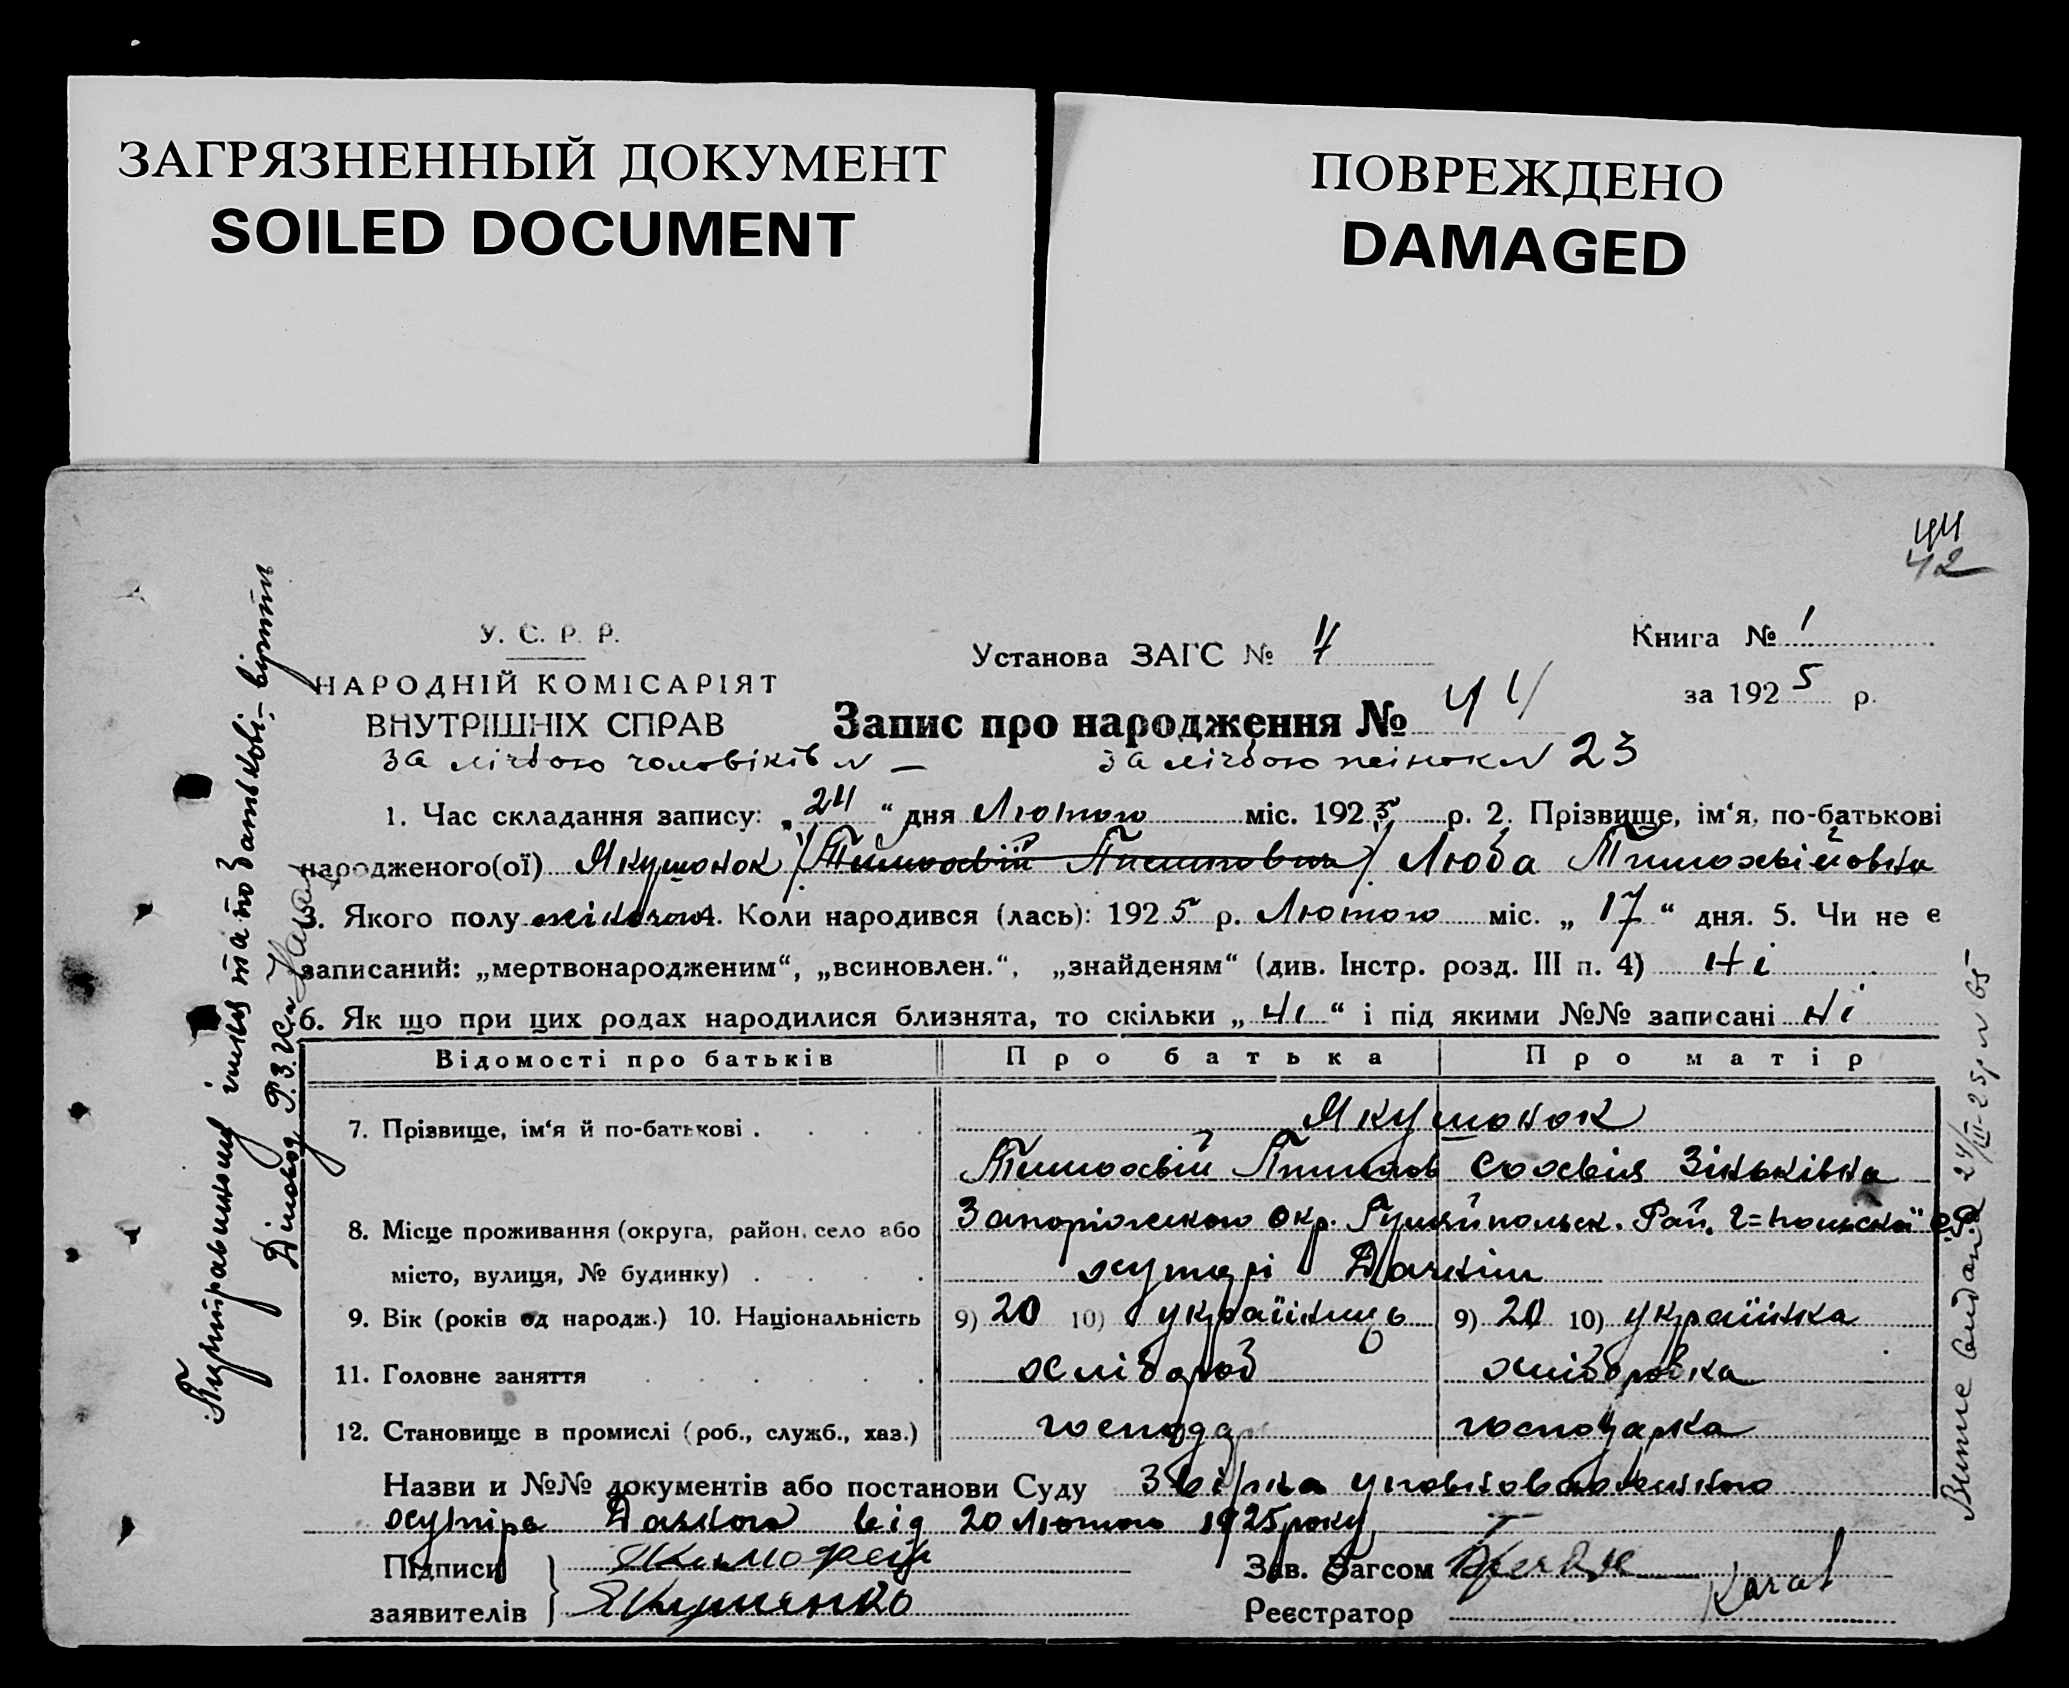 ЗАГРЯЗНЕННЫЙ ДОКУМЕНТ
SOILED DOCUMENT
ПОВРЕЖДЕНО
DAMAGED
44
42
У. С. Р. Р.
НАРОДНІЙ КОМІСАРІЯТ
ВНУТРІШНІХ СПРАВ
Установа ЗАГС №
Книга № 1
за 1925 р.
Запис про народження № 44
за лічбою чоловіків № — за лічбою жінок № 23
1. Час складання запису: „24“ дня Лютого міс. 1925 р. 2. Прізвище, ім‘я, по-батькові
народженого(ої) Якушонок Люба Тимохвійовна
3. Якого полу жіночого 4. Коли народився (лась): 1925 р. Лютого міс. „17“ дня. 5. Чи не є
записаний: „мертвонародженим“, „всиновлен.“, „знайденям“ (див. Інстр. розд. III п. 4) Ні
6. Як що при цих родах народилися близнята, то скільки „Ні“ і під якими №№ записані Ні
Відомості про батьків Про батька Про матір
7. Прізвище, ім‘я й по-батькові . Якушонок
Тимохвій Пилипов Сохвія Зіньківна
8. Місце проживання (округа, район, село або Запоріжського Окр. Гуляйпольск. Рай.
місто, вулиця, № будинку) . хуторі
9. Вік (років од народж.) 10. Національність 9) 20 10) українець 9) 20 10) українка
11. Головне заняття хлібороб хліборобка
12. Становище в промислі (роб., служб., хаз.) господар господарка
Назви и №№ документів або постанови Суду Звірка уповноваженного
хутора від 20 Лютого 1925 року
Підписи
заявителів } Якушенко
Зав. Загсом
Реєстратор
імья та по батькові - вірить
Діловод